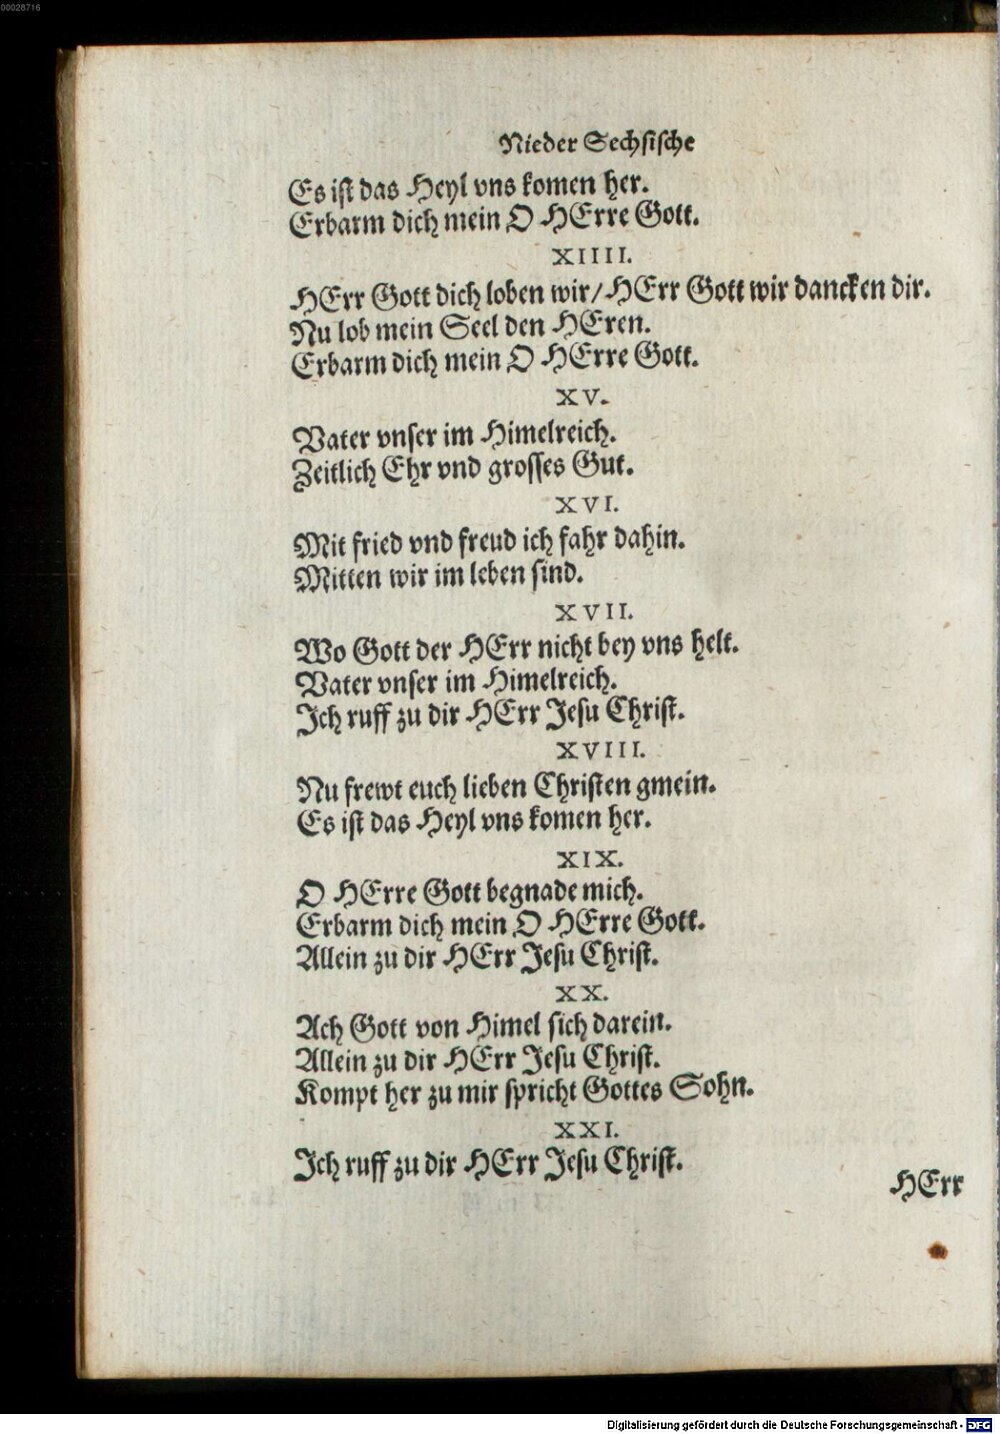 00028716
Nieder Sechsische
Es ist das Heyl vns komen her.
Erbarm dich mein O HErre Gott.
XIIII.
HErr Gott dich loben wir/HErr Gott wir dancken dir.
Nu lob mein Seel den HEren.
Erbarm dich mein O HErre Gott.
XV.
Vater vnser im Himelreich.
Zeitlich Ehr vnd grosses Gut.
XVI.
Mit fried vnd freud ich fahr dahin.
Mitten wir im leben sind.
XVII.
Wo Gott der HErr nicht bey vns helt.
Vater vnser im Himelreich.
Ich ruff zu dir HErr Jesu Christ.
XVIII.
Nu frewt euch lieben Christen gmein.
Es ist das Heyl vns komen her.
XIX.
O HErre Gott begnade mich.
Erbarm dich mein O HErre Gott.
Allein zu dir HErr Jesu Christ.
XX.
Ach Gott von Himel sich darein.
Allein zu dir HErr Jesu Christ.
Kompt her zu mir spricht Gottes Sohn.
XXI.
Ich ruff zu dir HErr Jesu Christ.
HErr
Digitalisierung gefördert durch die Deutsche Forschungsgemeinschaft - DFG